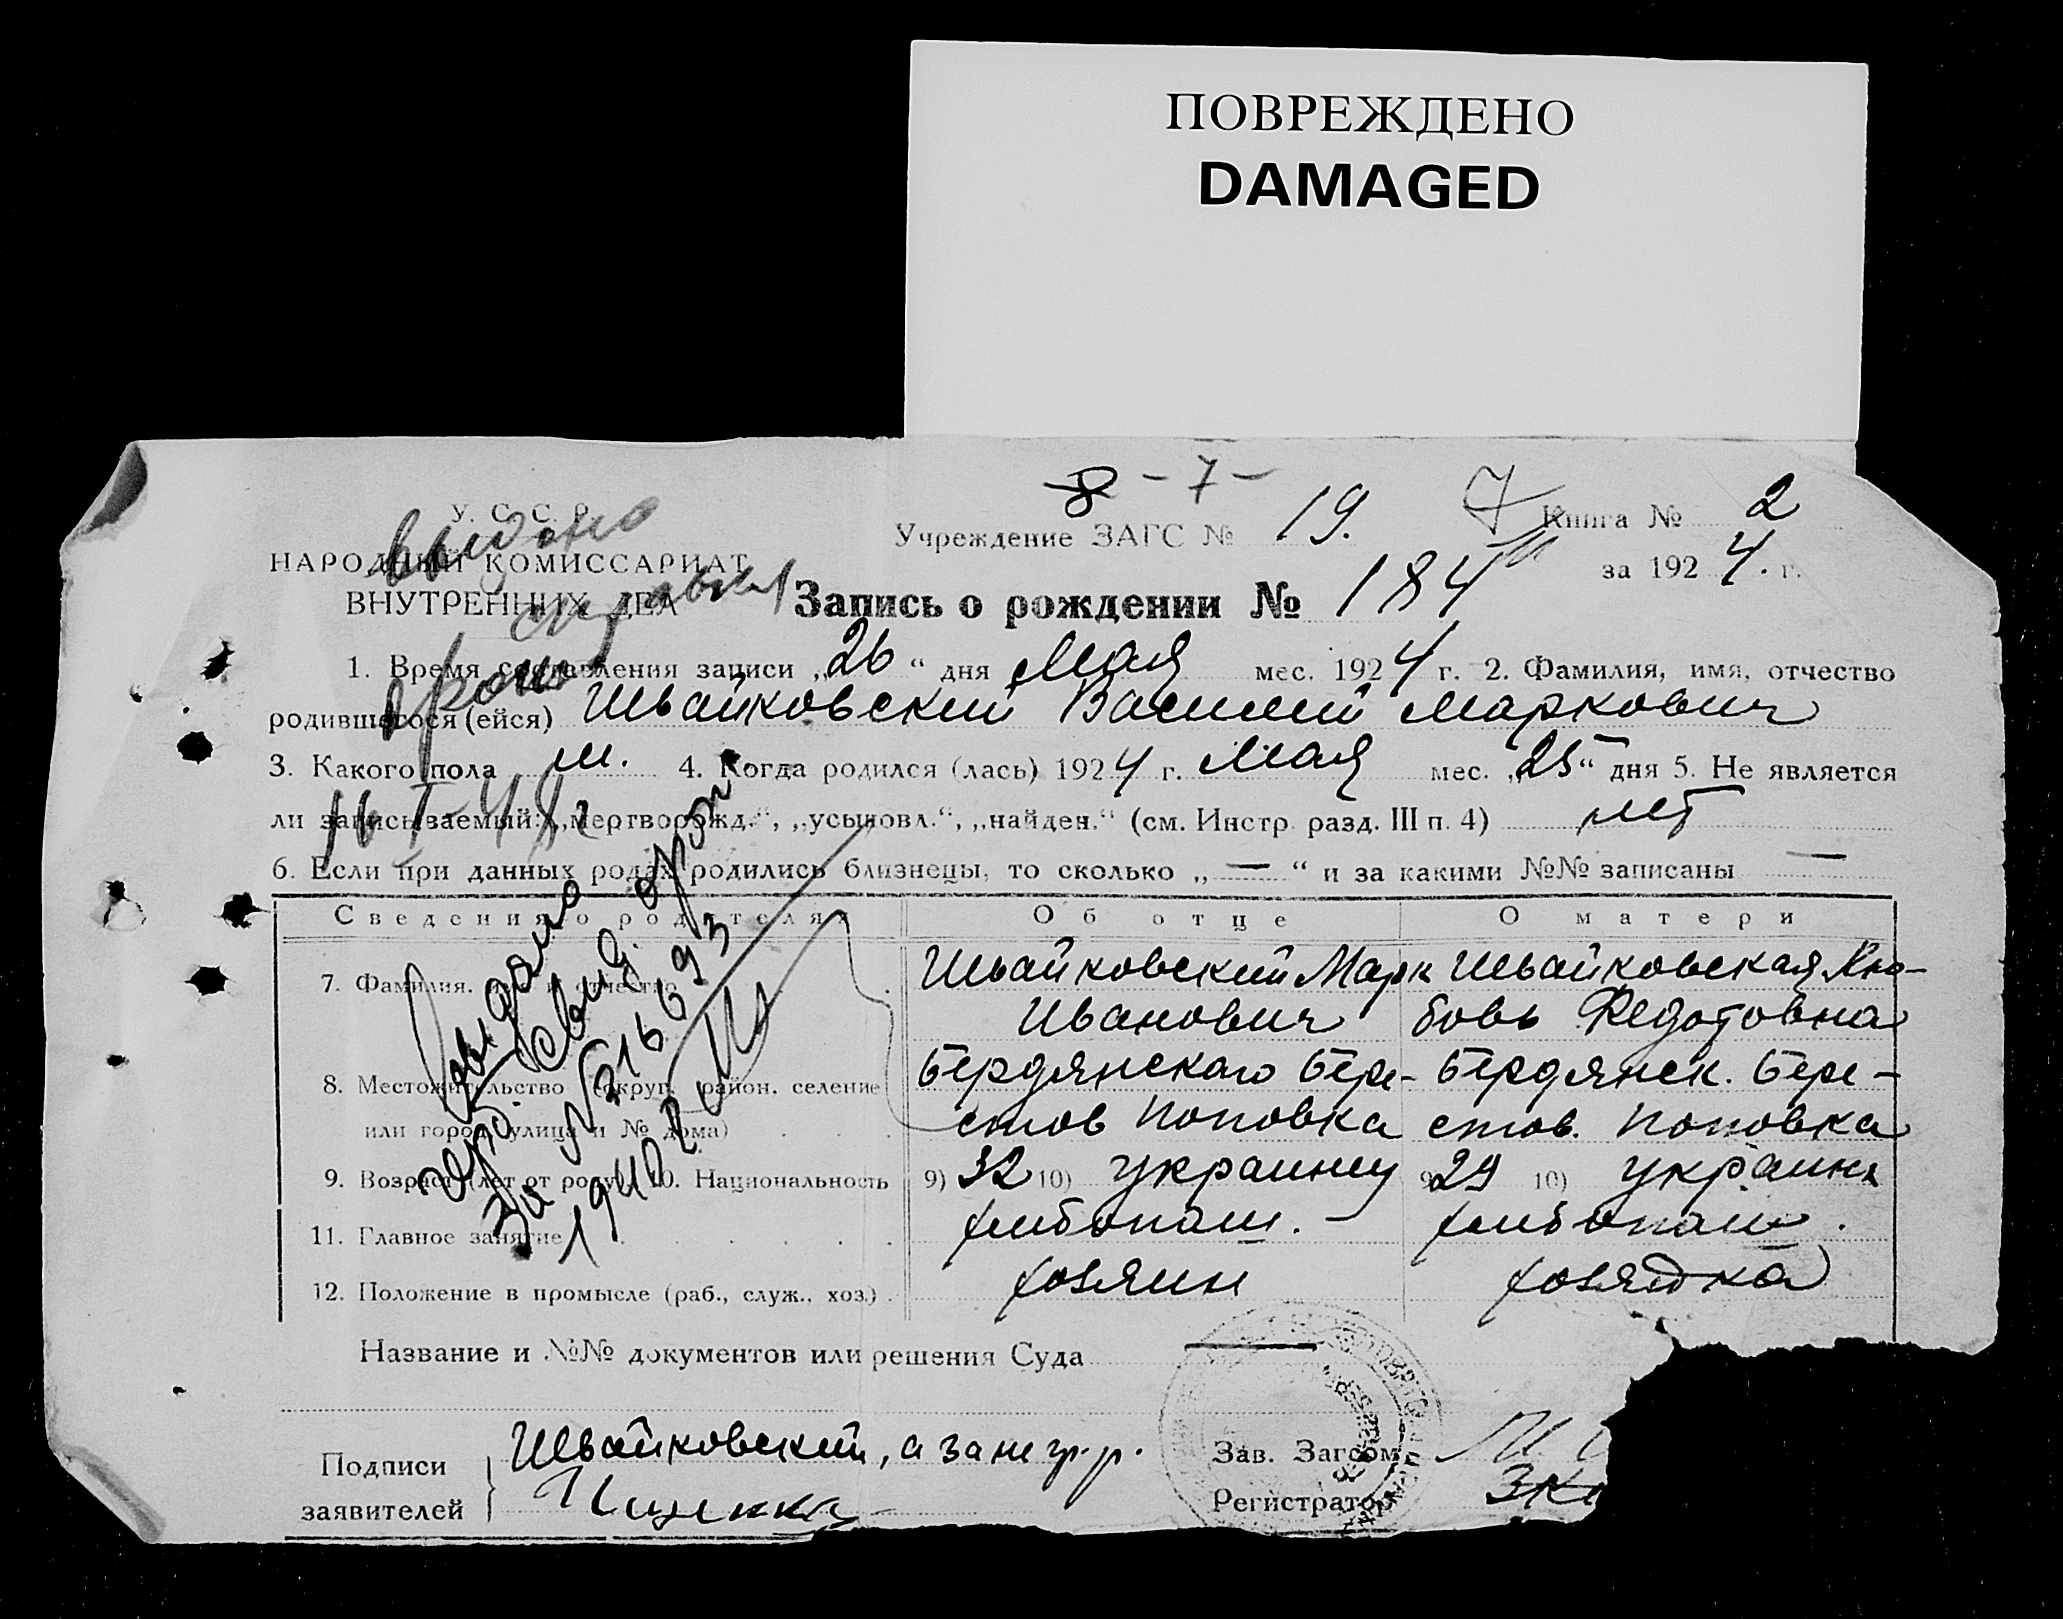 ПОВРЕЖДЕНО
DAMAGED
8 - 7 -
У. С. С. Р.
НАРОДНЫЙ КОМИССАРИАТ
ВНУТРЕННИХ ДЕЛ
Учреждение ЗАГС № 19.
7 Книга № 2
за 1924. г.
Запись о рождении № 184
1. Время составления записи „26“ дня Мая мес. 1924 г. 2. Фамилия, имя, отчество
родившегося (ейся) Швайковский Василий Маркович
3. Какого пола м. 4. Когда родился (лась) 1924 г. Мая мес. „25“ дня 5. Не является
ли записываемый: „мертворожд.“, „усыновл.“, „найден.“ (см. Инстр. разд. III п. 4) нет
6. Если при данных родах родились близнецы, то сколько „—“ и за какими №№ записаны —
Сведения о родителях Об отце О матери
7. Фамилия, имя и отчество Швайковский Марк Швайковская Лю-
Иванович бовь Федотовна
8. Местожительство (округ, район, селение Бердянского Бере- Бердянск. Бере-
или город, улица и № дома) стов Поповка стов. Поповка
9. Возраст (лет от роду) 10. Национальность 9) 32 10) украинц 9) 29 10) украинк
11. Главное занятие хлебопаш. - хлебопаш.
12. Положение в промысле (раб., служ., хоз.) хозяин хозяйка
Название и №№ документов или решения Суда —
Подписи
заявителей
Швайковский, а за не гр. р.
Ищенко
Зав. Загсом
Регистратор
выдано
справка
16 I-41
Выдано
повт. свид. о рож.
за № 216693
1940 г.